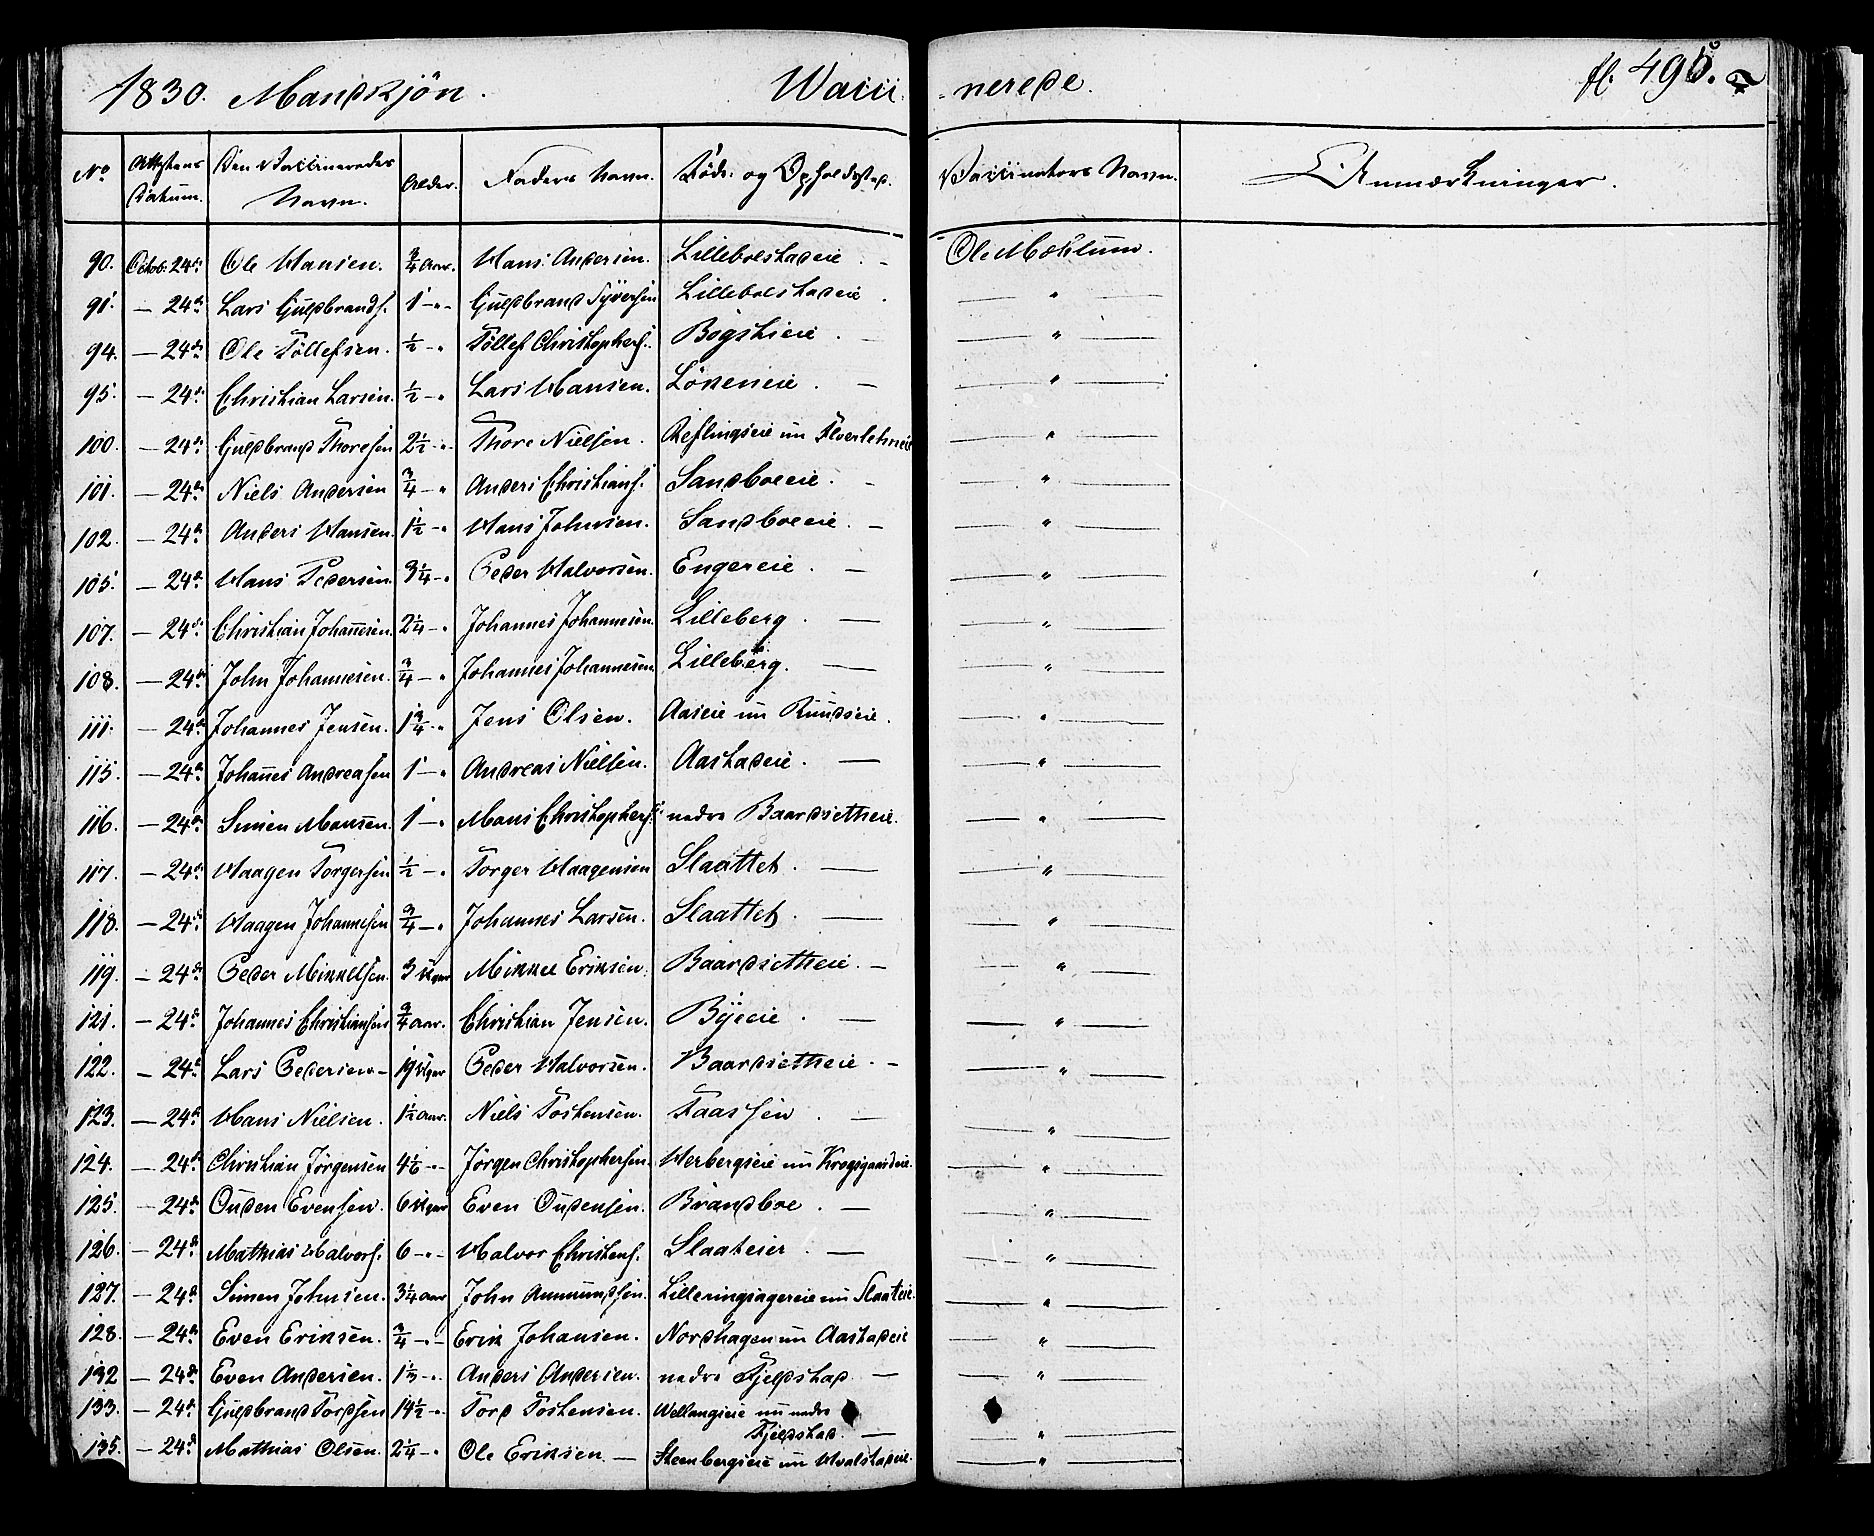 1830. Mandkjön. Wacci- nerede. fl. 495.
No Attestens Datum. Den Vaccineredes Navn. Alder. Faders Navn. Föde- og Opholdssted. Vaccinators Navn. Anmærkninger.
90. Octob: 24de Ole Hansen. 3/4 Aar. Hans Andersen. Lillebolstadeie. - Ole Mæhlum.
91. — 24de Lars Guldbrands. 1 - " Guldbrand Syversen Lillebolstadeie. — " —
94. — 24de Ole Töllefsen. 1/2 - " Töllef Christophers. Bogstieie. — " —
95. — 24de Christian Larsen. 1/2 - " Lars Hansen. Lökeneie. — — " —
100. — 24de Guldbrand Thoresen 2 1/2 - " Thore Nielsen. Reflingseie nu — " —
101. — 24de Niels Andersen 3/4 - " Anders Christians. Sandboeeie. - — " —
102. — 24de Anders Hansen. 1 1/2 - " Hans Johnsen. Sandboeeie. — — " —
105. — 24de Hans Pedersen. 3 1/4 - " Peder Halvorsen. Engereie. — — " —
107. — 24de Christian Johannesen. 2 1/4 - " Johannes Johannesen. Lilleberg. — — " —
108. — 24de John Johannesen. 3/4 - " Johannes Johannesen. Lilleberg. — — " —
111. — 24de Johannes Jensen. 1 3/4 - " Jens Olsen. Aaseie nu Ruudseie. — " —
115. — 24de Johannes Andreasen 1 - " Andreas Nielsen. Aastadeie. — — " —
116. — 24de Simen Hansen. 1 - " Hans Christophers. nedre Baardsetheie. — " —
117. — 24de Haagen Torgersen 1/2 - " Torger Haagensen Slaattet. — — " —
118. — 24de Haagen Johannesen 3/4 - " Johannes Larsen. Slaattet. — — " —
119. — 24de Peder Mikkelsen. 3 Uger Mikkel Eriksen. Baardsetheie. — — " —
121. — 24de Johannes Christiansen 3/4 Aar. Christian Jensen. Byeeie. — — " —
122. — 24de Lars Pedersen - 19 Uger Peder Halvorsen. Baardsetheie. - — " —
123. — 24de Hans Nielsen. 1 1/2 Aar. Niels Tostensen. Faassen. — — " —
124. — 24de Christian Jörgensen 4 1/6 - " Jörgen Christophersen. Herbergseie nu Krogsgaardeie. — " —
125. — 24de Ouden Evensen. 6 Uger Even Oudensen. Brandboe. — — " —
126. — 24de Mathias Halvors. 6 - " - Halvor Christens. Slaateier. — — " —
127. — 24de Simen Johnsen. 3 1/4 Aar John Amundsen. Lilleringsagereie nu Slaateie. — " —
128. — 24de Even Eriksen. 3/4 - " - Erik Johansen. Nordhagen nu Aastadeie — " —
132 — 24de Even Andersen. 1 1/3 - " Anders Andersen. nedre Fjeldstad. — — " —
133. — 24de Guldbrand Tordsen 14 1/2 - " Tord Tostensen. Wellangseie nu nedre
Fjeldstad. — — " —
135. — 24de Mathias Olsen. 2 1/4 - " Ole Eriksen. — Steenbergseie nu Hvalstadeie. — " —